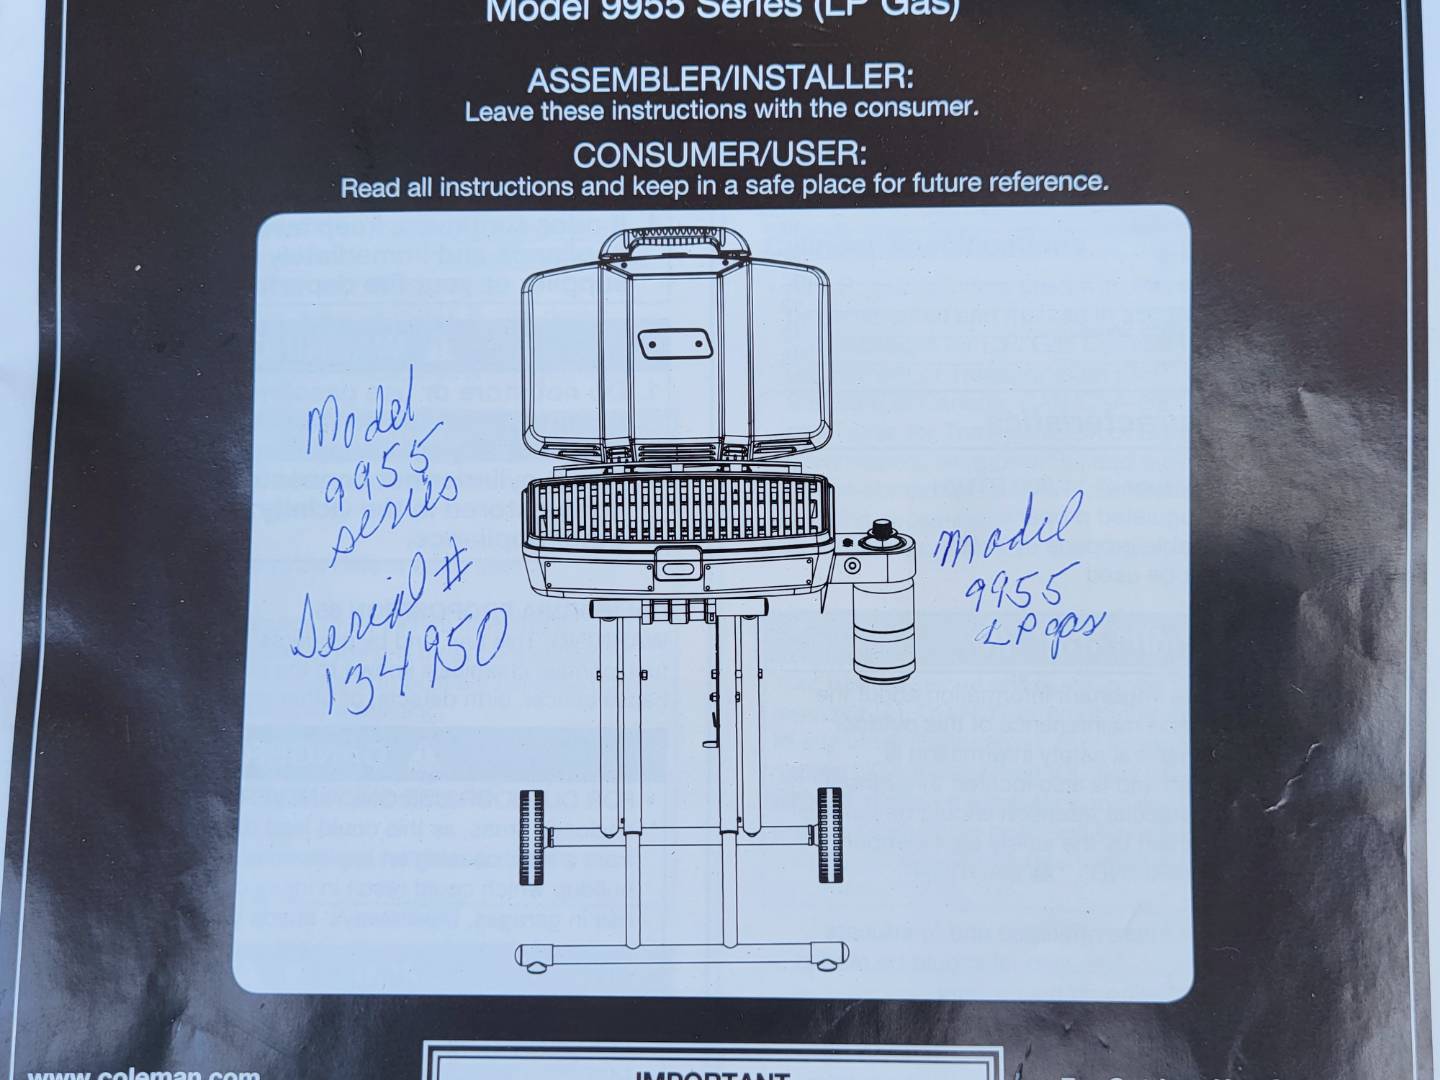 Model 9955 Series (LP Gas)
ASSEMBLER/INSTALLER:
Leave these instructions with the consumer.
CONSUMER/USER:
Read all instructions and keep in a safe place for future reference.
Model
9955
series
Serial #
134950
Model
9955
LP gas
www.coleman.com
IMPORTANT